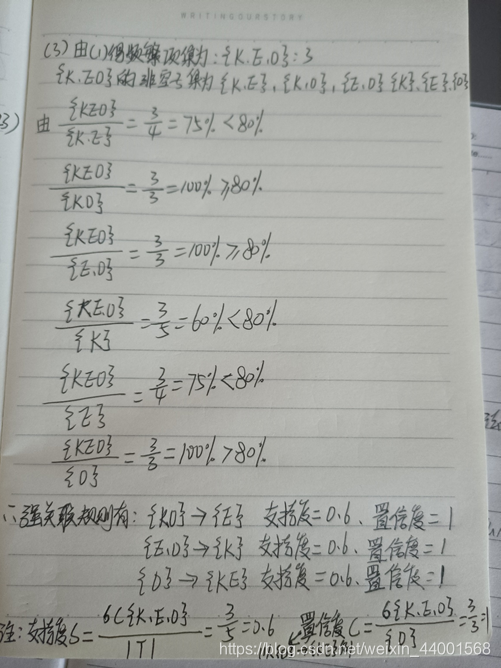 WRITINGOURSTORY
(3) 由(1)得频繁项集为：{K.E.O}：3
{K.E.O}的非空子集为{K.E}, {K.O}, {E.O} {K}.{E}.{O}
3)
由 {KEO}/{K.E} = 3/4 = 75% < 80%
{KEO}/{KO} = 3/3 = 100% ≥ 80%
{KEO}/{E.O} = 3/3 = 100% ≥ 80%
{K.E.O}/{K} = 3/5 = 60% < 80%
{KEO}/{E} = 3/4 = 75% < 80%
{KEO}/{O} = 3/3 = 100% > 80%
∴强关联规则有：{KO} → {E} 支持度=0.6、置信度=1
{E.O} → {K} 支持度=0.6、置信度=1
{O} → {KE} 支持度=0.6、置信度=1
注：支持度S = 6{K.E.O}/|T| = 3/5 = 0.6 置信度C = 6{K.E.O}/{O} = 3/3 = 1
https://blog.csdn.net/weixin_44001568